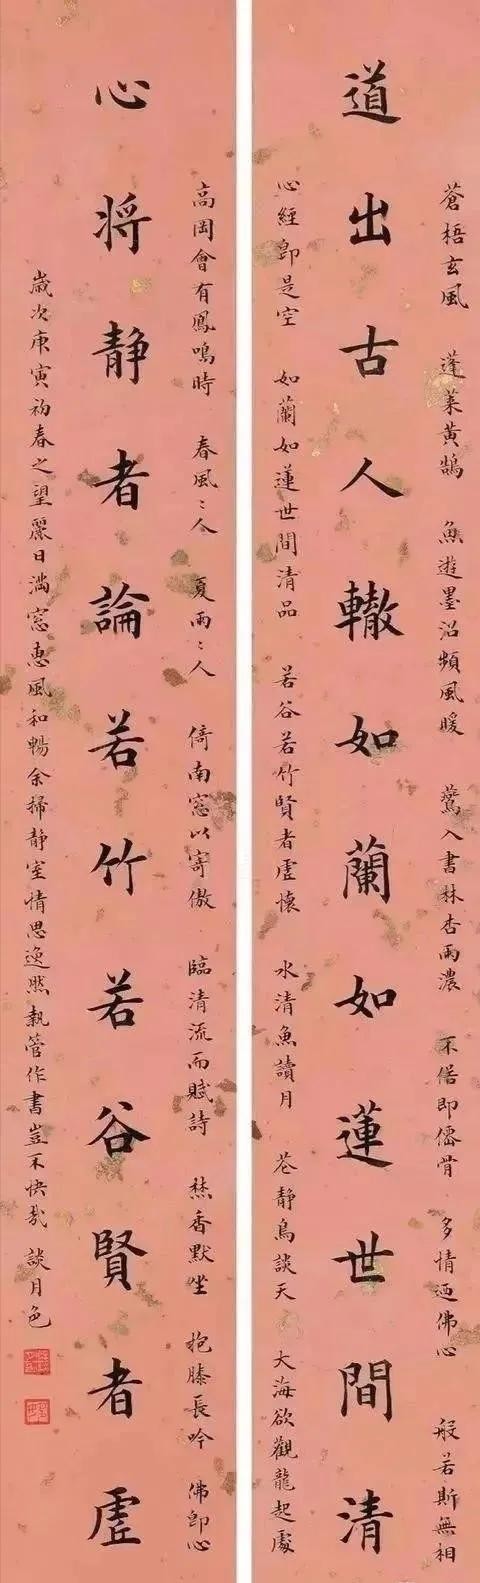 蒼梧玄風　蓬萊黃鵠　魚遊墨沼頻風暖　鶯入書林杏雨濃　不俗即僊骨　多情迺佛心　般若斯無相
道出古人轍如蘭如蓮世間清
心經即是空　如蘭如蓮世間清品　若谷若竹賢者虛懷　水清魚讀月　花靜鳥談天　大海欲觀龍起處
高岡會有鳳鳴時　春風〻人　夏雨〻人　倚南窓以寄傲　臨清流而賦詩　焚香默坐　抱膝長吟　佛即心
心將靜者論若竹若谷賢者虛
歲次庚寅初春之望麗日滿窓惠風和暢余掃靜室情思逸然執管作書豈不快哉　談月色